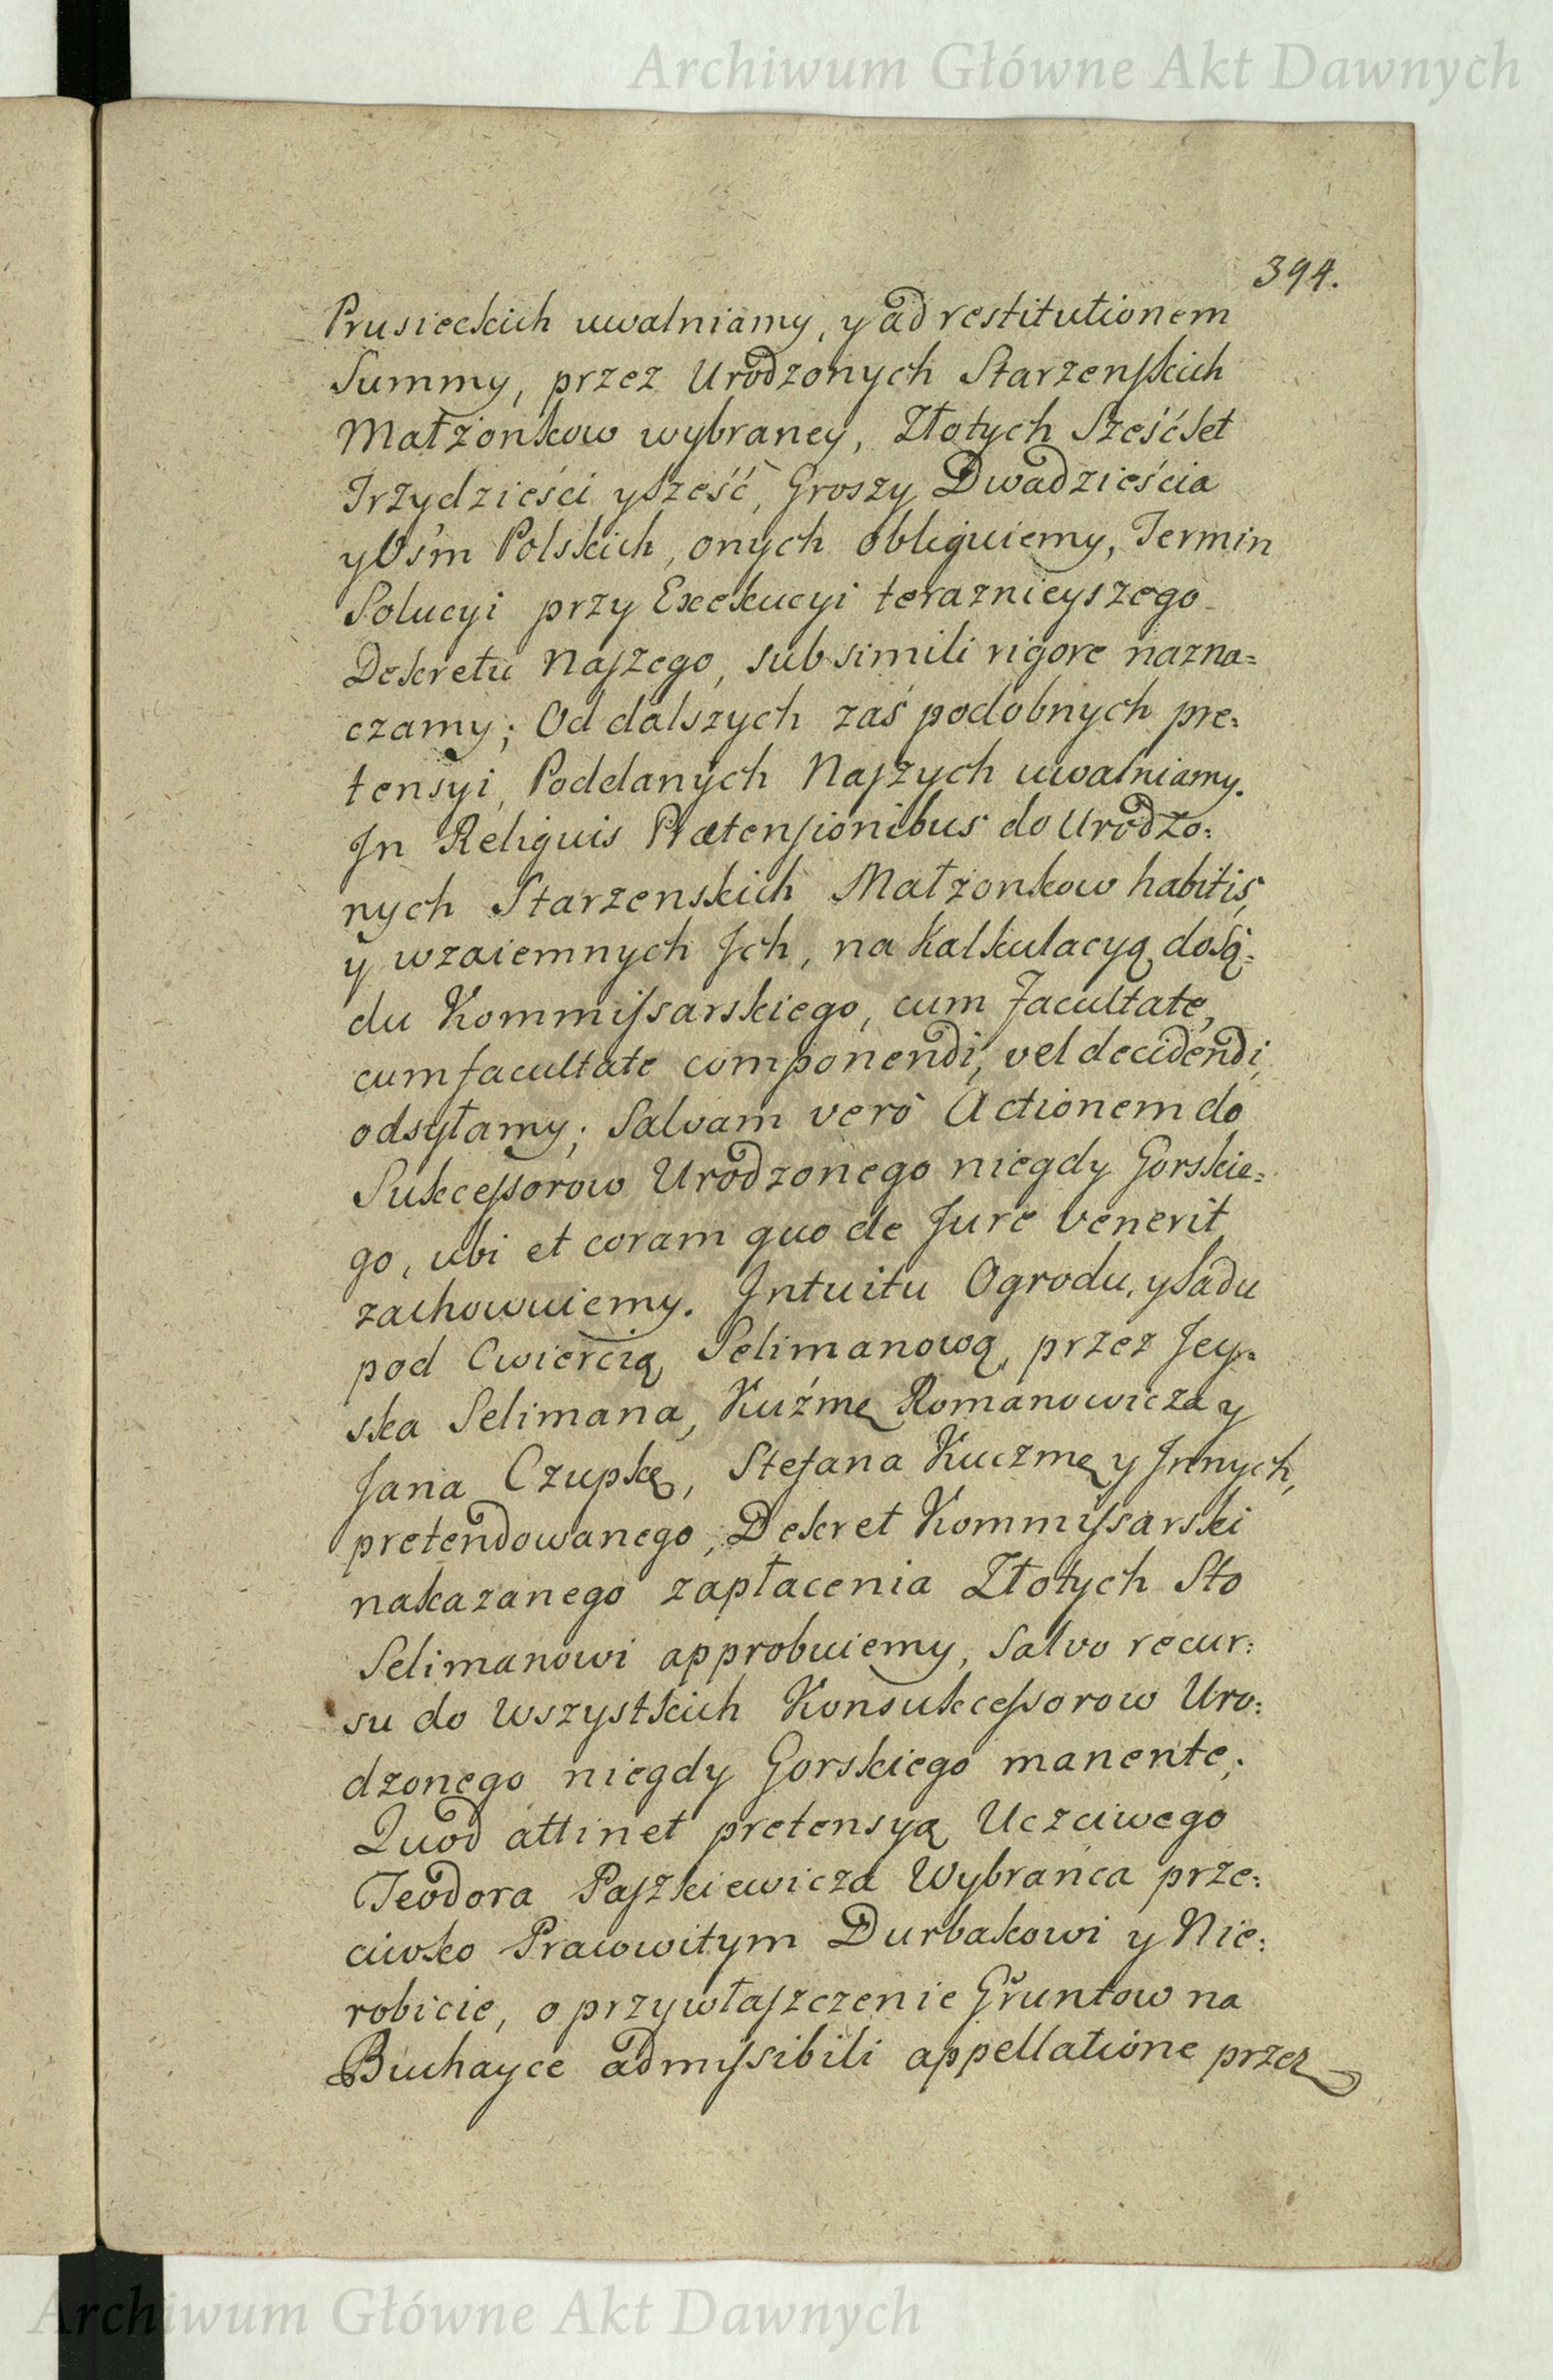 Archiwum Główne Akt Dawnych
394.
Prusieckich uwalniamy, y ad restitutionem
Summy, przez Urodzonych Starzenskich
Małżonkow wybraney, Złotych Sześćset
Trzydzieści y Sześć, Groszy Dwadzieścia
y Ośm Polskich, onych obliguiemy, Termin
Solucyi przy Exekucyi teraznieyszego
Dekretu Naszego, sub simili rigore nazna=
czamy; Od dalszych zaś podobnych pre:
tensyi, Poddanych Naszych uwalniamy.
Jn Reliquis Prætensionibus do Urodzo:
nych Starzenskich Małżonkow habitis,
y wzaiemnych Jch, na Kalkulacyą do Są:
du Kommissarskiego, cum facultate,
cum facultate componendi, vel decidendi,
odsyłamy; Salvam verò Actionem do
Sukcessorow Urodzonego niegdy Gorskie=
go, ubi et coram quo de Jure venerit
zachowuiemy. Jntuitu Ogrodu, y Sadu
pod Cwiercią Selimanową, przez Jey=
ska Selimana, Kuźmę Romanowicza y
Jana Czupkę, Stefana Kuczmę y Jnnych,
pretendowanego, Dekret Kommissarski
nakazanego zapłacenia Złotych Sto
Selimanowi approbuiemy, Salvo recur:
su do wszystkich Konsukcessorow Uro:
dzonego niegdy Gorskiego manente;
Quod attinet pretensyą Uczciwego
Teodora Paszkiewicza Wybranca prze:
ciwko Prawowitym Durbakowi y Nie:
robicie, o przywłaszczenie Gruntow na
Buchayce admissibili appellatione przez
Archiwum Główne Akt Dawnych